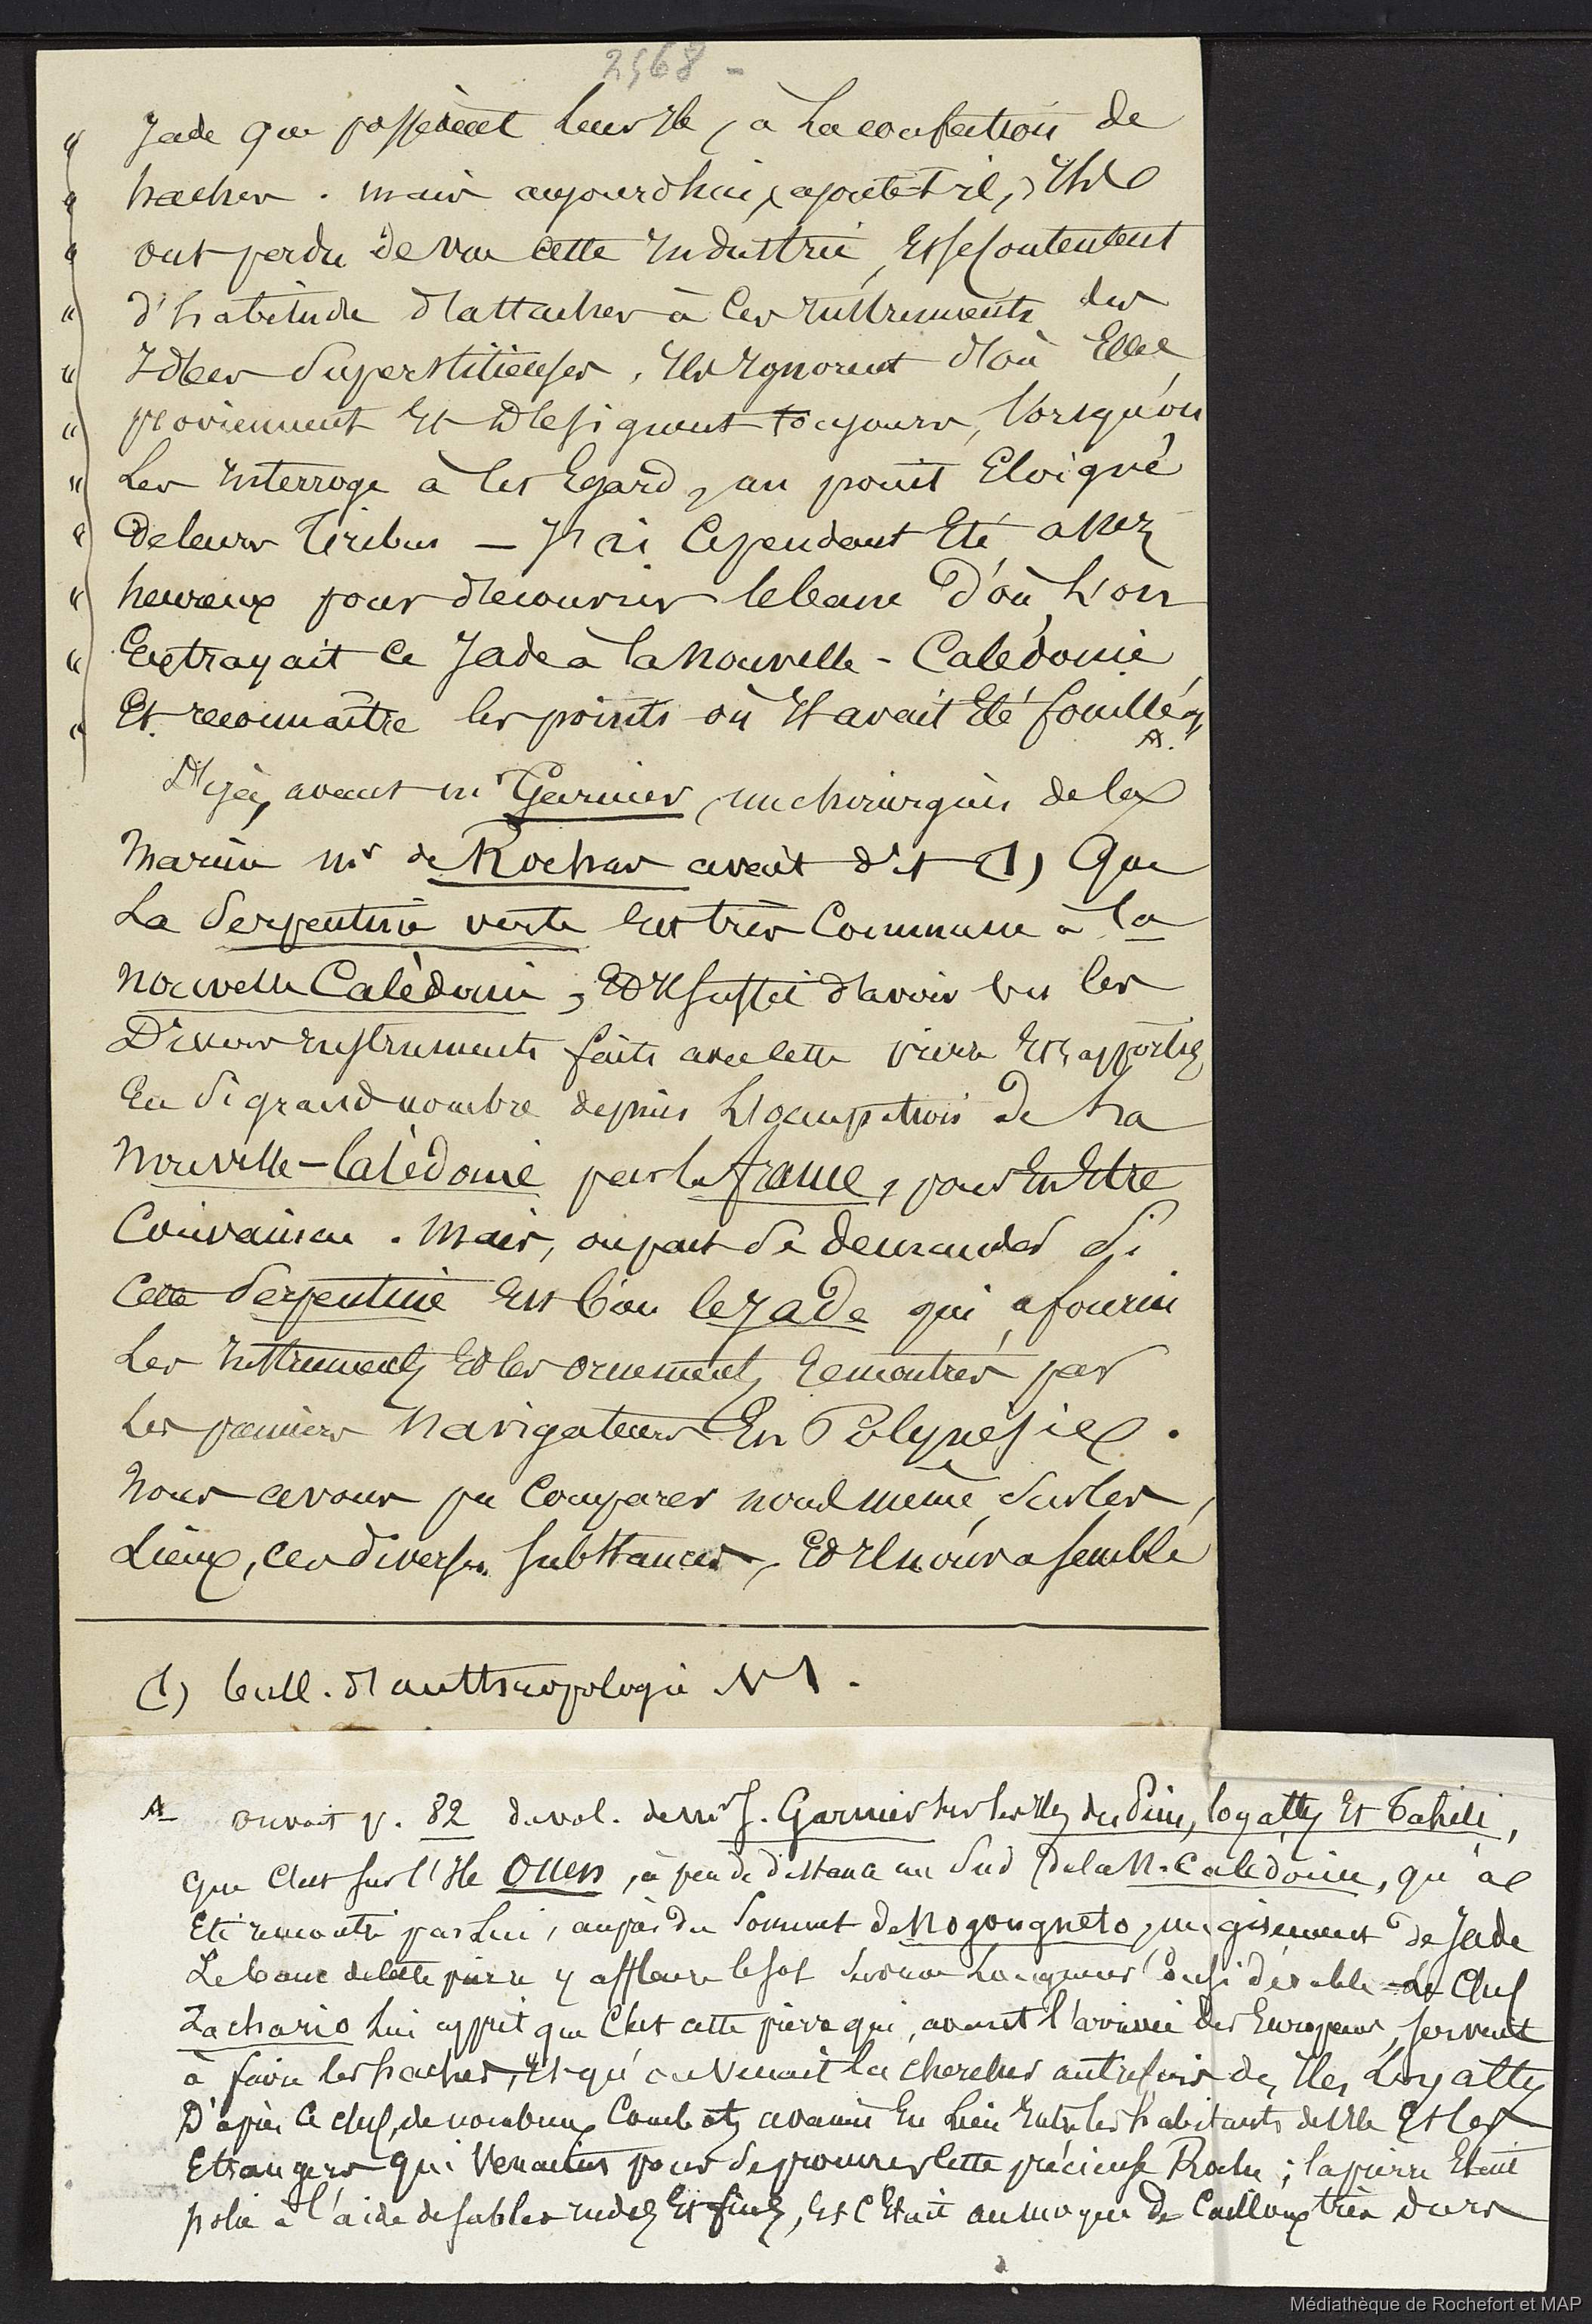 2568 -
" Jade que possèdent leurs Ile, à la confection de
" haches. mais aujourd'hui, ajoute-t-il, Ils
" ont perdu de vue cette Industrie, Et se contentent
" d'habitude d'attacher à ces Instruments des
" Idées superstitieuses. Ils Ignorent d'où Elles
" proviennent Et Désignent toujours, lorsqu'on
" les Interroge à cet Egard, un point Eloigné
" de leurs tribus — J'ai cependant Eté assez
" heureux pour découvrir le banc d'où l'on
" Extrayait ce Jade à la Nouvelle-Calédonie
" Et reconnaître les points où Il avait Eté fouillé "
A.
Déjà, avant Mr Garnier, un chirurgien de la
Marine Mr de Rochas avait dit (1) que
la serpentine verte Est très commune à la
Nouvelle Calédonie, Et Il suffit d'avoir vu les
Divers Instruments faits avec cette pierre Et rapportés
En si grand nombre depuis l'occupation de la
Nouvelle-Calédonie par la france, pour En Etre
Convaincu. Mais, on peut se demander si
Cette serpentine Est bien le Jade qui a fourni
les Instruments Et les ornements rencontrés par
les premiers Navigateurs En Polynésie.
Nous avons pu comparer nous même, sur les
Lieux, ces diverses substances, Et Il nous a semblé
(1) bull. d'anthropologie N 1.
A on voit p. 82 du vol. de Mr J. Garnier sur les Iles des Pins, loyalty Et Tahiti,
que c'est sur l'Ile Ouen, à peu de distance au Sud de la N. Calédonie, qu'a
Eté rencontré par lui, auprès du sommet de Nogougneto, un gisement de Jade
Le banc de cette pierre y affleure le sol sur une longueur considérable - Le Chef
Zachario lui apprit que c'est cette pierre qui, avant l'arrivée des Européens, servait
à faire les haches, Et qu'on venait la chercher autrefois des Iles Loyalty
D'après ce chef, de nombreux combats avaient Eu lieu Entre les habitants de l'Ile Et les
Etrangers qui venaient pour se procurer cette précieuse Roche ; la pierre Etait
polie à l'aide de sables rudes Et fins, Et c'Etait au moyen de cailloux très durs
Médiathèque de Rochefort et MAP